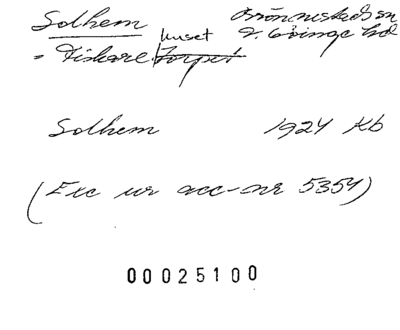 Solhem Brönnestads sn
= Fiskare huset torpet V. Göinge hd
Solhem 1924 Kb
(Exc ur acc-nr 5354)
00025100